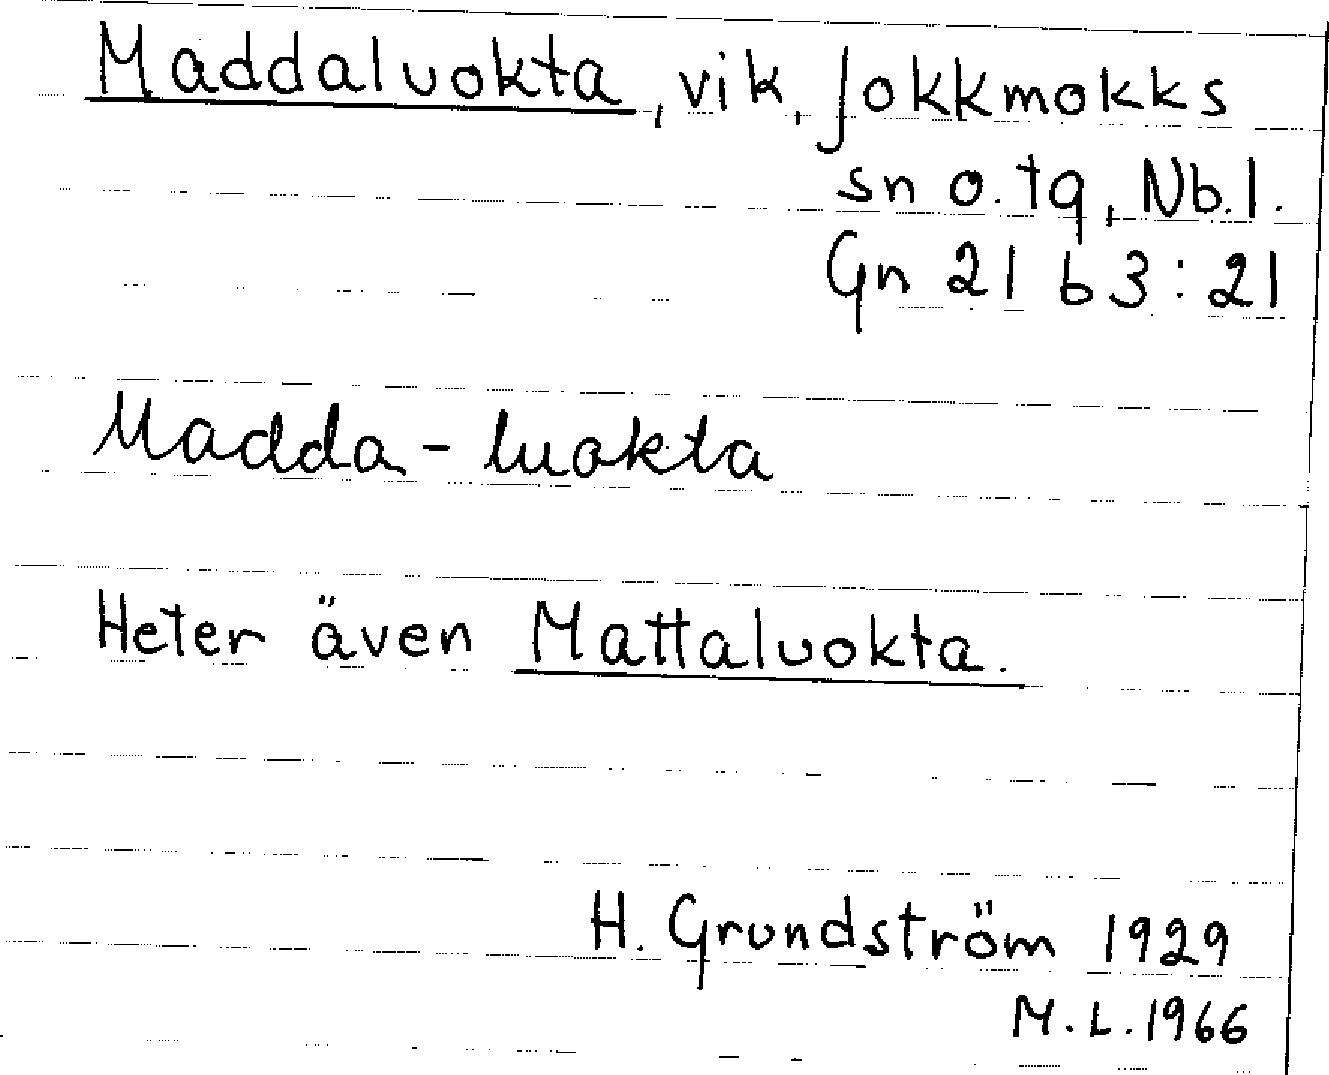 Maddaluokta, vik, Jokkmokks
sn o. tg, Nb.l.
Gn 21 b 3:21
Madda-luokta
Heter även Mattaluokta.
H. Grundström 1929
M.L. 1966